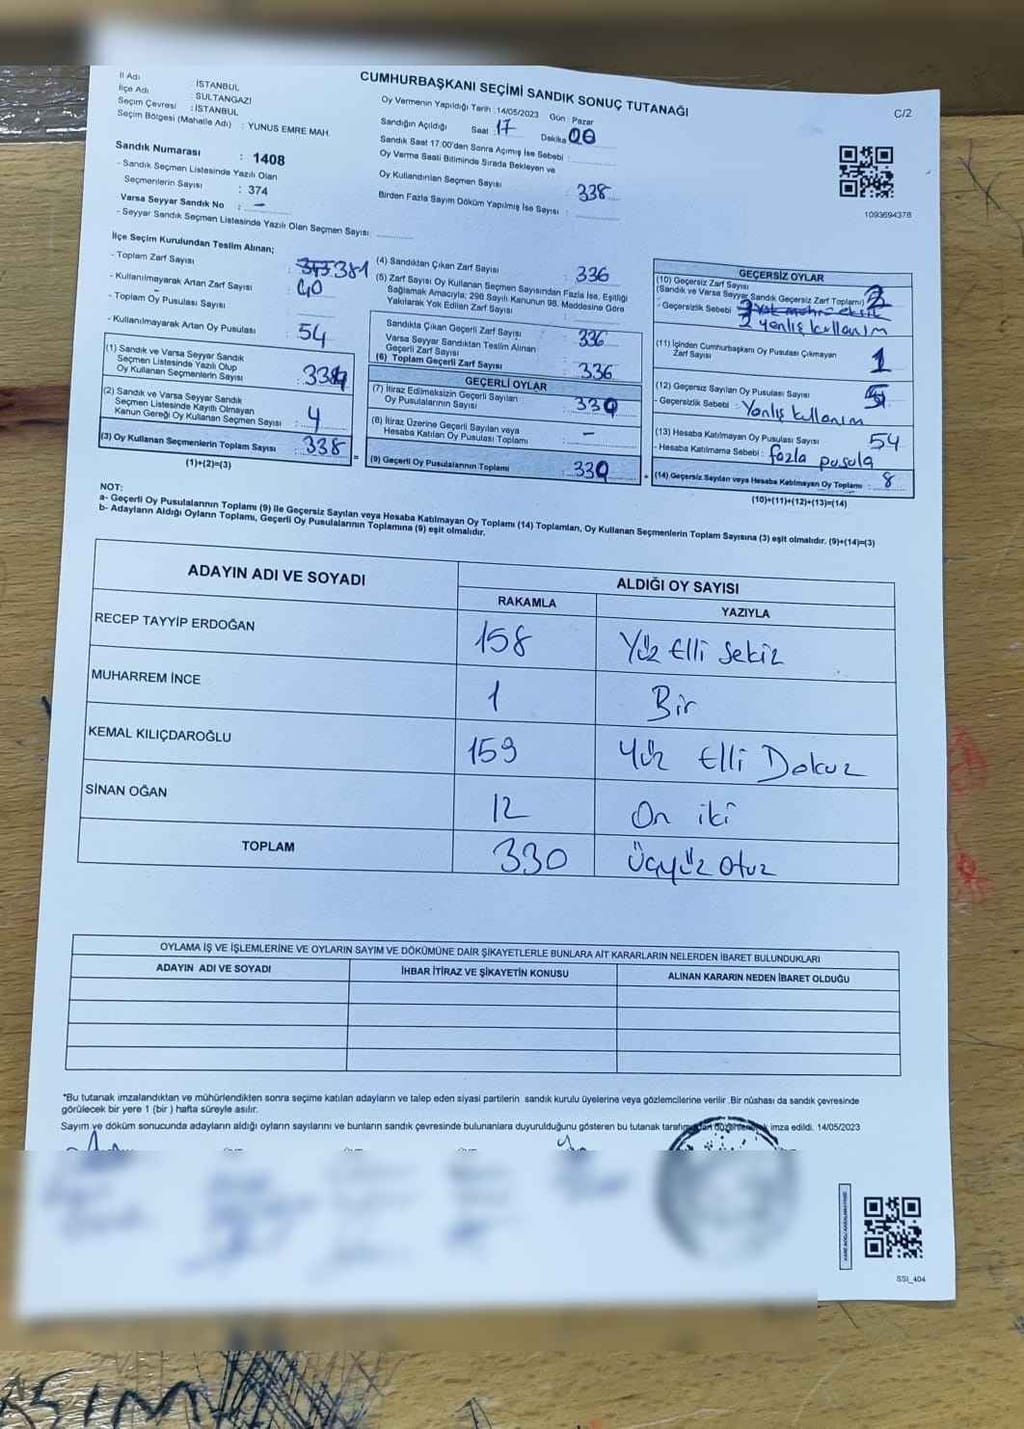 CUMHURBAŞKANI SEÇİMİ SANDIK SONUÇ TUTANAĞI
C/2
İl Adı : İSTANBUL
İlçe Adı : SULTANGAZİ
Seçim Çevresi : İSTANBUL
Seçim Bölgesi (Mahalle Adı) : YUNUS EMRE MAH.
Sandık Numarası : 1408
- Sandık Seçmen Listesinde Yazılı Olan
Seçmenlerin Sayısı : 374
Varsa Seyyar Sandık No : -
- Seyyar Sandık Seçmen Listesinde Yazılı Olan Seçmen Sayısı :
Oy Vermenin Yapıldığı Tarih : 14/05/2023 Gün : Pazar
Sandığın Açıldığı Saat 17 Dakika 00
Sandık Saat 17.00'den Sonra Açımış İse Sebebi :
Oy Verme Saati Bitiminde Sırada Bekleyen ve
Oy Kullandırılan Seçmen Sayısı : 338
Birden Fazla Sayım Döküm Yapılmış İse Sayısı :
1093694376
İlçe Seçim Kurulundan Teslim Alınan;
- Toplam Zarf Sayısı : 381
- Kullanılmayarak Artan Zarf Sayısı : 40
- Toplam Oy Pusulası Sayısı :
- Kullanılmayarak Artan Oy Pusulası : 54
(1) Sandık ve Varsa Seyyar Sandık
Seçmen Listesinde Yazılı Olup
Oy Kullanan Seçmenlerin Sayısı :
(2) Sandık ve Varsa Seyyar Sandık
Seçmen Listesinde Kayıtlı Olmayan
Kanun Gereği Oy Kullanan Seçmen Sayısı : 4
(3) Oy Kullanan Seçmenlerin Toplam Sayısı : 338
(1)+(2)=(3)
(4) Sandıktan Çıkan Zarf Sayısı : 336
(5) Zarf Sayısı Oy Kullanan Seçmen Sayısından Fazla İse, Eşitliği
Sağlamak Amacıyla; 298 Sayılı Kanunun 98. Maddesine Göre
Yakılarak Yok Edilen Zarf Sayısı :
Sandıkta Çıkan Geçerli Zarf Sayısı : 336
Varsa Seyyar Sandıktan Teslim Alınan
Geçerli Zarf Sayısı :
(6) Toplam Geçerli Zarf Sayısı : 336
GEÇERLİ OYLAR
(7) İtiraz Edilmeksizin Geçerli Sayılan
Oy Pusulalarının Sayısı : 330
(8) İtiraz Üzerine Geçerli Sayılan veya
Hesaba Katılan Oy Pusulası Toplamı : -
(9) Geçerli Oy Pusulalarının Toplamı : 330
GEÇERSİZ OYLAR
(10) Geçersiz Zarf Sayısı
(Sandık ve Varsa Seyyar Sandık Geçersiz Zarf Toplamı) : 2
- Geçersizlik Sebebi :
2 yanlış kullanım
(11) İçinden Cumhurbaşkanı Oy Pusulası Çıkmayan
Zarf Sayısı : 1
(12) Geçersiz Sayılan Oy Pusulası Sayısı : 5
- Geçersizlik Sebebi : Yanlış kullanım
(13) Hesaba Katılmayan Oy Pusulası Sayısı : 54
- Hesaba Katılmama Sebebi : fazla pusula
(14) Geçersiz Sayılan veya Hesaba Katılmayan Oy Toplamı : 8
(10)+(11)+(12)+(13)=(14)
NOT:
a- Geçerli Oy Pusulalarının Toplamı (9) ile Geçersiz Sayılan veya Hesaba Katılmayan Oy Toplamı (14) Toplamları, Oy Kullanan Seçmenlerin Toplam Sayısına (3) eşit olmalıdır. (9)+(14)=(3)
b- Adayların Aldığı Oyların Toplamı, Geçerli Oy Pusulalarının Toplamına (9) eşit olmalıdır.
ADAYIN ADI VE SOYADI
ALDIĞI OY SAYISI
RAKAMLA YAZIYLA
RECEP TAYYİP ERDOĞAN 158 Yüz Elli Sekiz
MUHARREM İNCE 1 Bir
KEMAL KILIÇDAROĞLU 159 Yüz Elli Dokuz
SİNAN OĞAN 12 On iki
TOPLAM 330 Üçyüz otuz
OYLAMA İŞ VE İŞLEMLERİNE VE OYLARIN SAYIM VE DÖKÜMÜNE DAİR ŞİKAYETLERLE BUNLARA AİT KARARLARIN NELERDEN İBARET BULUNDUKLARI
ADAYIN ADI VE SOYADI İHBAR İTİRAZ VE ŞİKAYETİN KONUSU ALINAN KARARIN NEDEN İBARET OLDUĞU
"Bu tutanak imzalandıktan ve mühürlendikten sonra seçime katılan adayların ve talep eden siyasi partilerin sandık kurulu üyelerine veya gözlemcilerine verilir .Bir nüshası da sandık çevresinde
görülecek bir yere 1 (bir ) hafta süreyle asılır.
Sayım ve döküm sonucunda adayların aldığı oyların sayılarını ve bunların sandık çevresinde bulunanlara duyurulduğunu gösteren bu tutanak imza edildi. 14/05/2023
SSI_404